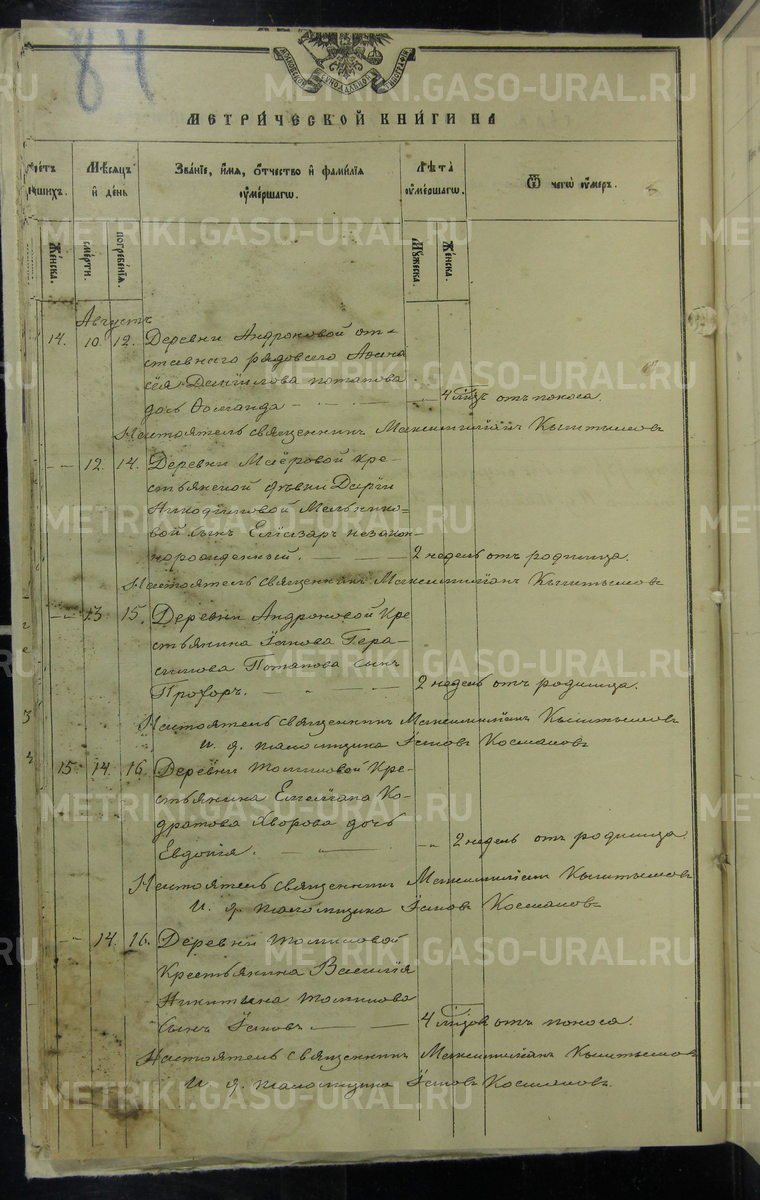 84
МОСКОВСКОЙ СѴНОДАЛЬНОЙ ТИПОГРАФІИ
МЕТРИ́ЧЕСКОЙ КНИ́ГИ НА
Мѣ́сяцъ и҆ де́нь
Зва́нїе, и҆́мя, ѻ҆́тчество и҆ фами́лїя оу҆ме́ршагѡ.
Лѣ́та оу҆ме́ршагѡ.
Ѿ чегѡ̀ оу҆́меръ.
Же́нска.
сме́рти.
погребе́нїѧ.
Мꙋ́жеска.
Же́нска.
Августъ
14. 10. 12. Деревни Андроновой от=
ставнаго рядоваго Аѳана
сія Даніилова Потапова
дочь — — — 4 отъ поноса.
Настоятель священникъ Максимиліанъ Кыштымовъ
-- 12. 14. Деревни Маёровой кре-
стьянской дѣвки Дарьи
Никодимовой Мельнико=
вой сынъ Еліазаръ незакон-
норожденный. — — 2 недель отъ родимца.
Настоятель священникъ Максимиліанъ Кыштымовъ
-- 13 15. Деревни Андроновой кре
стьянина Іакова Гера-
симова Потапова сынъ
Прохоръ. — „ — 2 недель отъ родимца.
Настоятель священникъ Максимиліанъ Кыштымовъ
И. д. псаломщика Іаковъ Космаковъ
15. 14. 16. Деревни Томиловой Кре-
стьянина Емеліана Ко-
дратова Хворова дочь
Евдокія. — -- 2 недель отъ родимца.
Настоятель священникъ Максимиліанъ Кыштымовъ
И. д. псаломщика Іаковъ Космаковъ
-- 14. 16. Деревни Томиловой
Крестьянина Василія
Никитина Томилова
сынъ Іаковъ — — 4 отъ поноса.
Настоятель священникъ Максимиліанъ Кыштымовъ
И. д. псаломщика Іаковъ Космаковъ.
METRIKI.GASO-URAL.RU